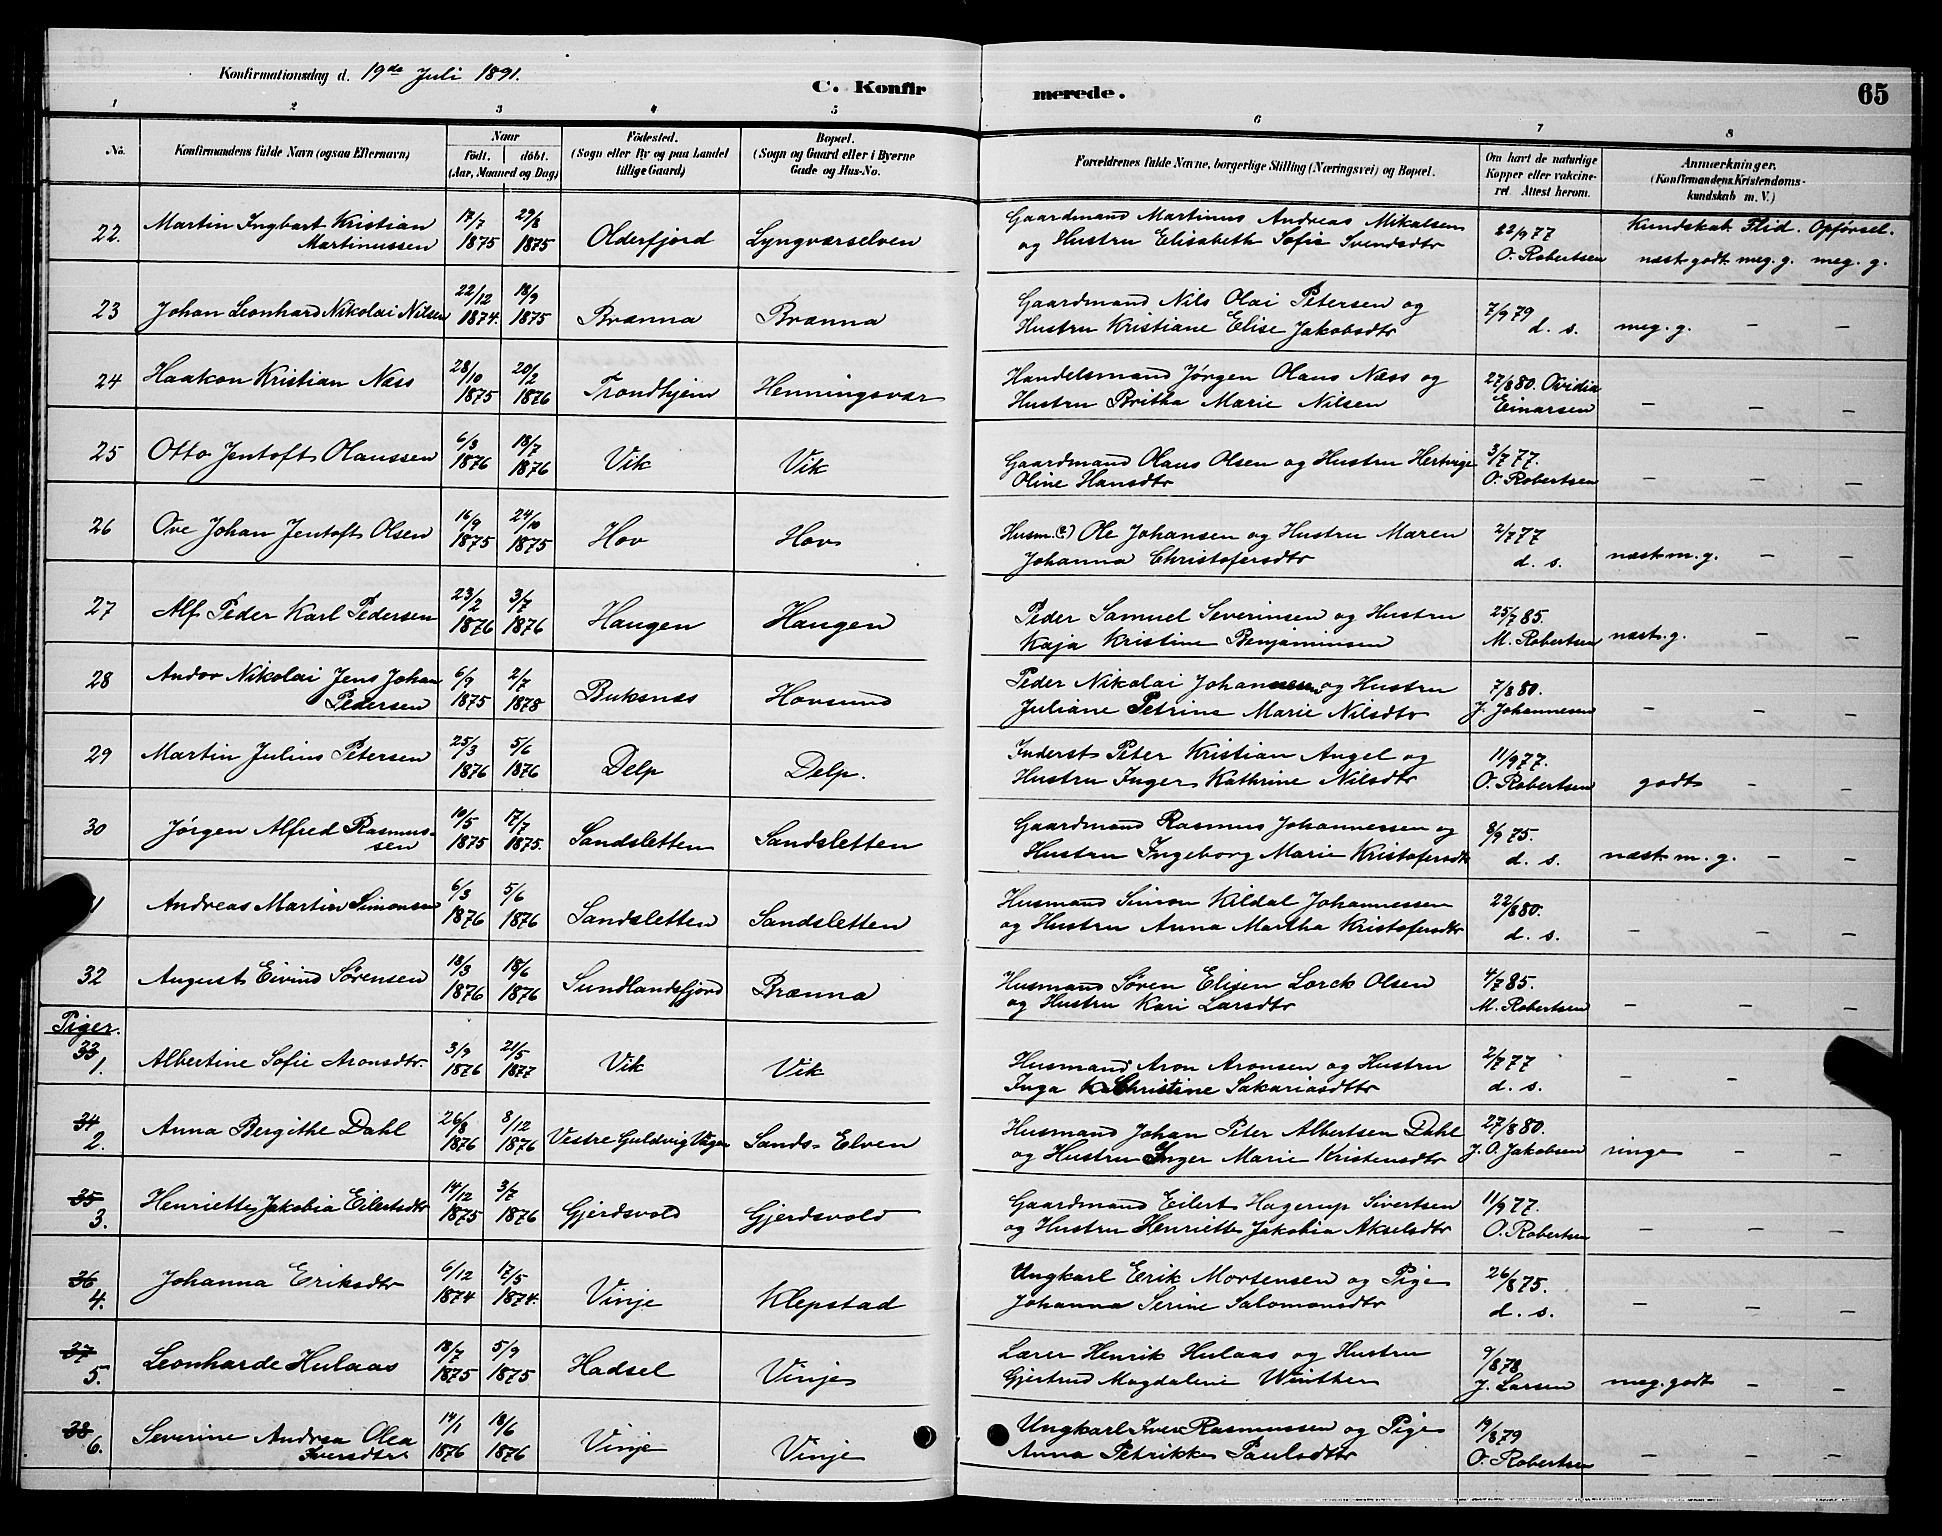 Konfirmationsdag d. 19de Juli 1891.
C. Konfirmerede.
65
1 2 3 4 5 6 7 8
No.
Konfirmandens fulde Navn (ogsaa Efternavn)
Naar
født. døbt.
(Aar, Maaned og Dag)
Fødested.
(Sogn eller By og paa Landet
tillige Gaard)
Bopæl.
(Sogn og Gaard eller i Byerne
Gade og Hus-No.
Forældrenes fulde Navne, borgerlige Stilling (Næringsvei) og Bopæl.
Om havt de naturlige
Kopper eller vakcine-
ret. Attest herom.
Anmærkninger.
(Konfirmandens Kristendoms-
kundskab m. V.)
Kundskab Flid. Opførsel.
22. Martin Ingbart Kristian Martinussen 17/7 1875 29/8 1875 Olderfjord Lyngværselven Gaardmand Martinus Andreas Mikalsen
og Hustru Elisabeth Sofie Svendsdtr 22/9 77 O. Robertsen næst godt meg. g. meg. g.
23 Johan Leonhard Nikolai Nilsen 22/12 1874. 18/9 1875 Brænna Brænna Gaardmand Nils Olai Petersen og
Hustru Kristiane Elise Jakobsdtr 7/9 79 d. s. meg. g. — —
24 Haakon Kristian Næss 28/10 1875 20/2 1876 Trondhjem Henningsvær Handelsmand Jørgen Olaus Næss og
Hustru Britha Marie Nilsen 27/8 80. Ovidia Einarsen — — —
25 Otto Jentoft Olaussen 6/3 1876 18/7 1876 Vik Vik Gaardmand Olaus Olsen og Hustru Hertvige
Oline Hansdtr 3/7 77. O. Robertsen — — —
26 Ove Johan Jentoft Olsen 16/9 1875 24/10 1875 Hov Hov Husm. (?) Ole Johansen og Hustru Maren
Johanna Christofersdtr 2/7 77 d. s. næst m. g. — —
27 Alf Peder Karl Pedersen 23/2 1876 3/7 1876 Haugen Haugen Peder Samuel Severinsen og Hustru
Kaja Kristine Benjaminsen 25/7 85. M. Robertsen næst. g. — —
28 Andor Nikolai Jens Johan Pedersen 6/9 1875 2/7 1878 Buksnæs Hovsund Peder Nikolai Johannesen og Hustru
Juliane Petrine Marie Nilsdtr 7/8 80. J. Johannesen — — —
29 Martin Julius Petersen 25/3 1876 5/6 1876 Delp Delp. Inderst Peter Kristian Angel og
Hustru Inger Kathrine Nilsdtr 11/9 77. O. Robertsen godt — —
30 Jørgen Alfred Rasmus-
sen 10/5 1875 17/7 1875. Sandsletten Sandsletten Gaardmand Rasmus Johannessen og
Hustru Ingeborg Marie Kristofersdtr 8/9 75. d. s. næst m. g. — —
1 Andreas Martin Simonsen 6/3 1876 5/6 1876 Sandsletten Sandsletten Husmand Simon Kildal Johannessen
og Hustru Anna Martha Kristofersdtr 22/8 80. d. s. — — —
32 August Eivind Sørensen 13/3 1876 18/6 1876 Sundlandsfjord Brænna Husmand Søren Elisen Lorck Olsen
og Hustru Kari Larsdtr 4/7 85. M. Robertsen — — —
Piger.
33 1. Albertine Sofie Aronsdtr. 3/9 1876 21/5 1877 Vik Vik Husmand Aron Aronsen og Hustru
Inga Christine Sakariasdtr 2/7 77 d. s. — — —
34 2. Anna Bergithe Dahl 26/8 1876 8/12 1876 Vestre Guldvig Vagan Sands-Elven Husmand Johan Peter Albertsen Dahl
og Hustru Inger Marie Kristensdtr 27/8 80. J. O. Jakobsen ringe — —
35 3. Henriette Jakobia Eilertsdtr 14/12 1875 3/7 1876 Gjerdsvold Gjerdsvold Gaardmand Eilert Hagerup Sivertsen
og Hustru Henriette Jakobia Akselsdtr 11/9 77. O. Robertsen — — —
36 4. Johanna Eriksdtr 6/12 1874 17/5 1874. Vinje Klepstad Ungkarl Erik Mortensen og Pige
Johanna Serine Salomonsdtr 26/8 75. d. s. — — —
37 5. Leonharde Hulaas 18/7 1875 5/9 1875 Hadsel Vinje Lærer Henrik Hulaas og Hustru
Gjertrud Magdalene Winther 9/8 78 J. Larsen meg. godt — —
38 6. Severine Andrea Olea Iversdtr 14/1 1876 18/6 1876 Vinje Vinje Ungkarl Iver Rasmussen og Pige
Anna Petrikke Paulsdtr 19/8 79 O. Robertsen — — —